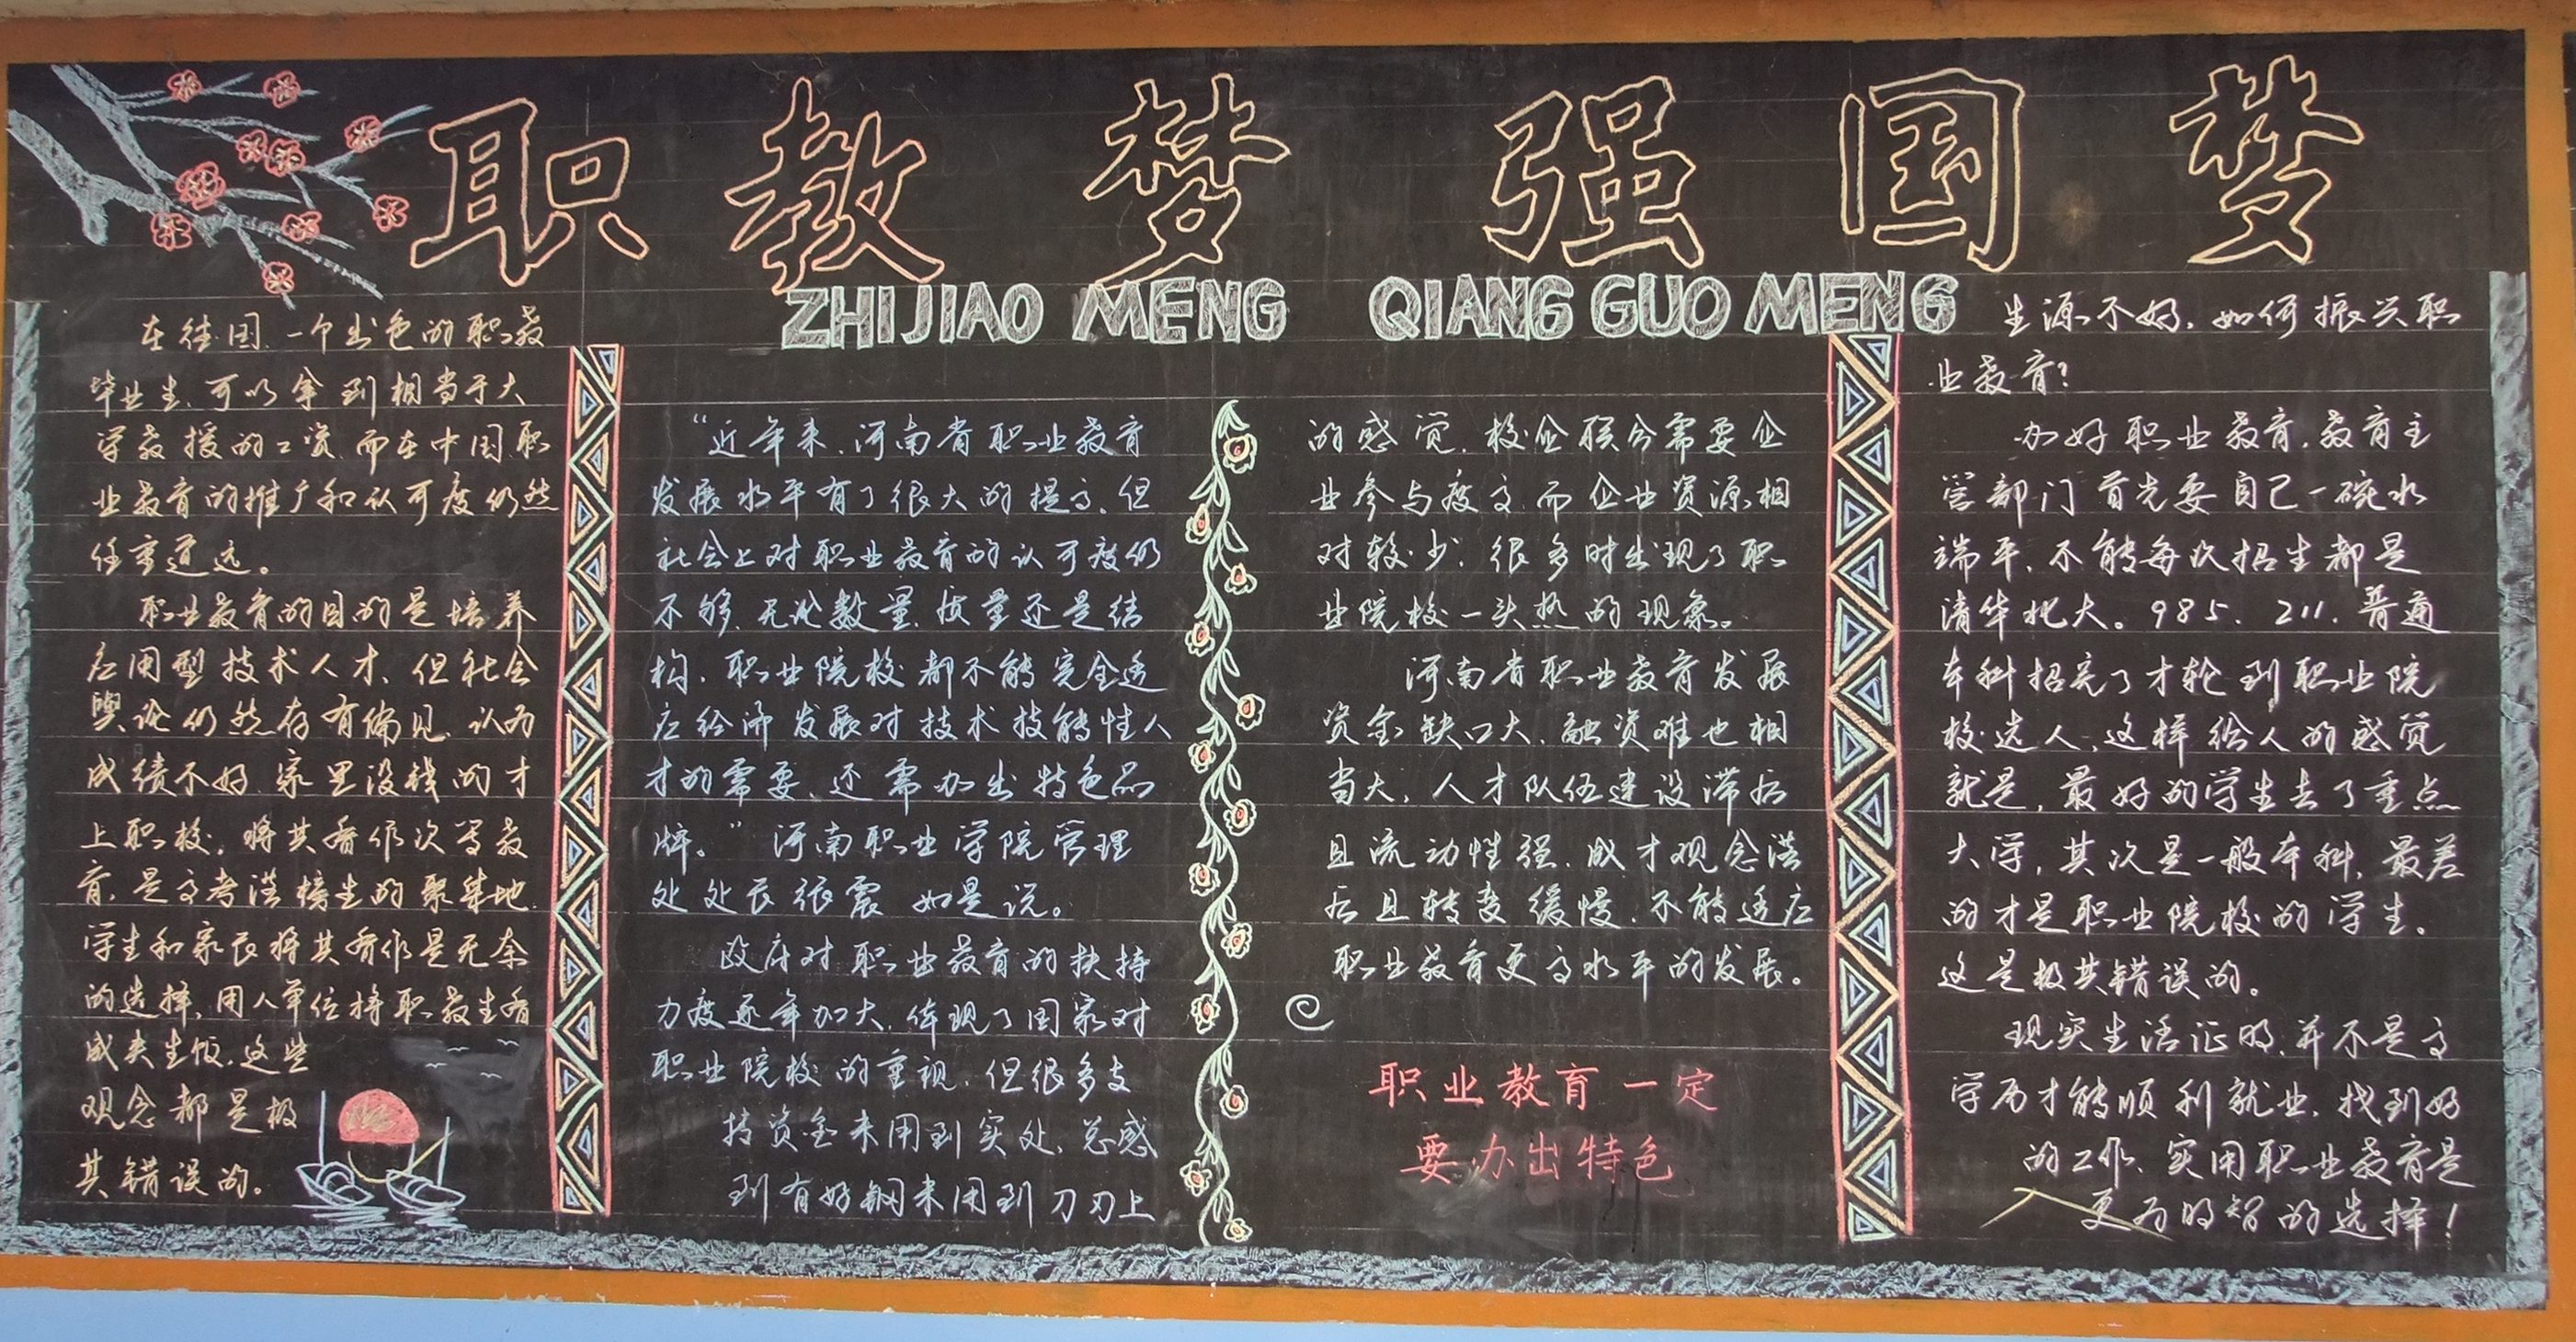 职教梦 强国梦
ZHIJIAO MENG QIANG GUO MENG
在德国.一个出色的职教
毕业生.可以拿到相当于大
学教授的工资.而在中国.职
业教育的推广和认可度仍然
任重道远。
职业教育的目的是培养
应用型技术人才.但社会
舆论仍然存有偏见.认为
成绩不好.家里没钱的才
上职校.将其看作次等教
育.是高考落榜生的聚集地.
学生和家长将其看作是无奈
的选择.用人单位将职教生看
成夹生饭.这些
观念都是极
其错误的。
“近年来.河南省职业教育
发展水平有了很大的提高.但
社会上对职业教育的认可度仍
不够.无论数量.质量还是结
构.职业院校都不能完全适
应经济发展对技术技能性人
才的需要.还需办出特色品
牌。”河南职业学院管理
处处长张震如是说。
政府对职业教育的扶持
力度逐年加大.体现了国家对
职业院校的重视.但很多支
持资金未用到实处.总感
到有好钢未用到刀刃上
的感觉.校企联合需要企
业参与度高.而企业资源相
对较少.很多时出现了职
业院校一头热的现象。
河南省职业教育发展
资金缺口大.融资难也相
当大.人才队伍建设滞后
且流动性强.成才观念落
后且转变缓慢.不能适应
职业教育更高水平的发展。
职业教育一定
要办出特色
生源不好.如何振兴职
业教育?
办好职业教育.教育主
管部门首先要自己一碗水
端平.不能每次招生都是
清华北大。985.211.普通
本科招完了才轮到职业院
校选人.这样给人的感觉
就是.最好的学生去了重点
大学,其次是一般本科.最差
的才是职业院校的学生.
这是极其错误的。
现实生活证明.并不是高
学历才能顺利就业.找到好
的工作.实用职业教育是
更为明智的选择!